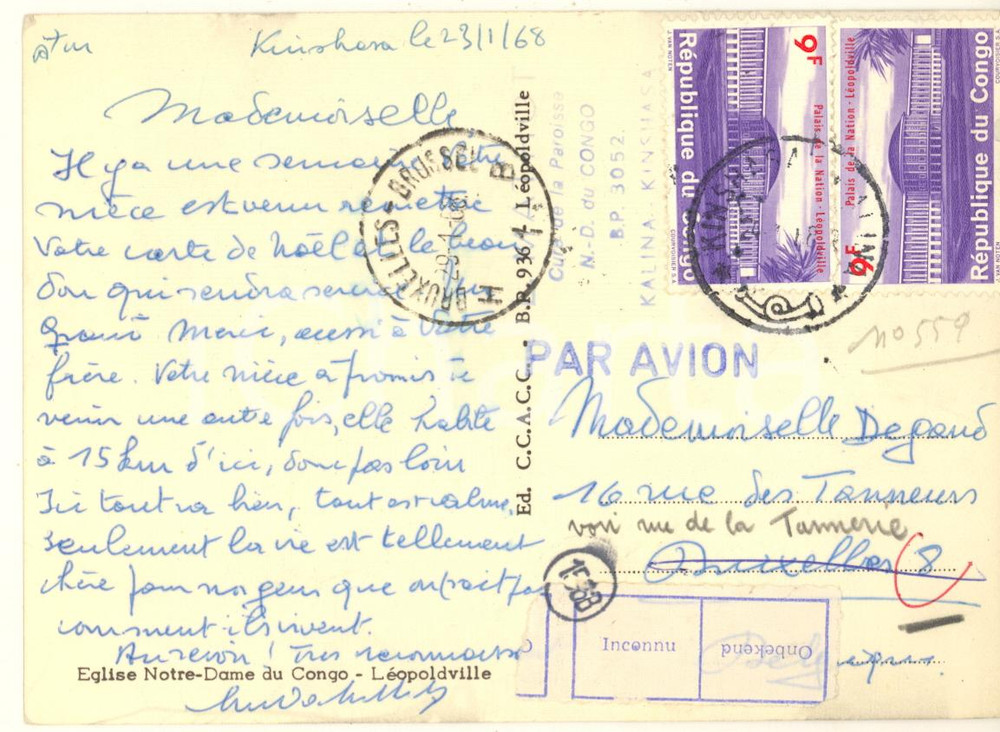 Kinshasa le 23/1/68
Mademoiselle
Il y a une semaine votre
nièce est venu remettre
Votre carte de Noël et le beau
don qui rendra service
Grand Merci, aussi à Votre
frère. Votre nièce a promis de
venir une autre fois, elle habite
à 15 km d'ici, donc pas loin
Ici tout va bien, tout est calme,
seulement la vie est tellement
chère pour nos gens que on sait pas
comment ils vivent.
Au revoir! Très reconnaissa
Eglise Notre-Dame du Congo - Léopoldville
Ed. C.C.A.C.C. B.P. 936 - Léopoldville
BRUXELLES - BRUSSEL
B
H
Curé de la Paroisse
N.-D. du CONGO
B.P. 3052
KALINA-KINSHASA
République du Congo
9F
Palais de la Nation - Léopoldville
J. VAN NOTEN
COURVOISIER S.A.
République du Congo
9F
Palais de la Nation - Léopoldville
COURVOISIER S.A.
KINSHASA
KALINA
no 559
PAR AVION
Mademoiselle Degand
16 rue des Tanneurs
voir rue de la Tannerie
Bruxelles 8
1E36B
Inconnu
Onbekend
Belgique